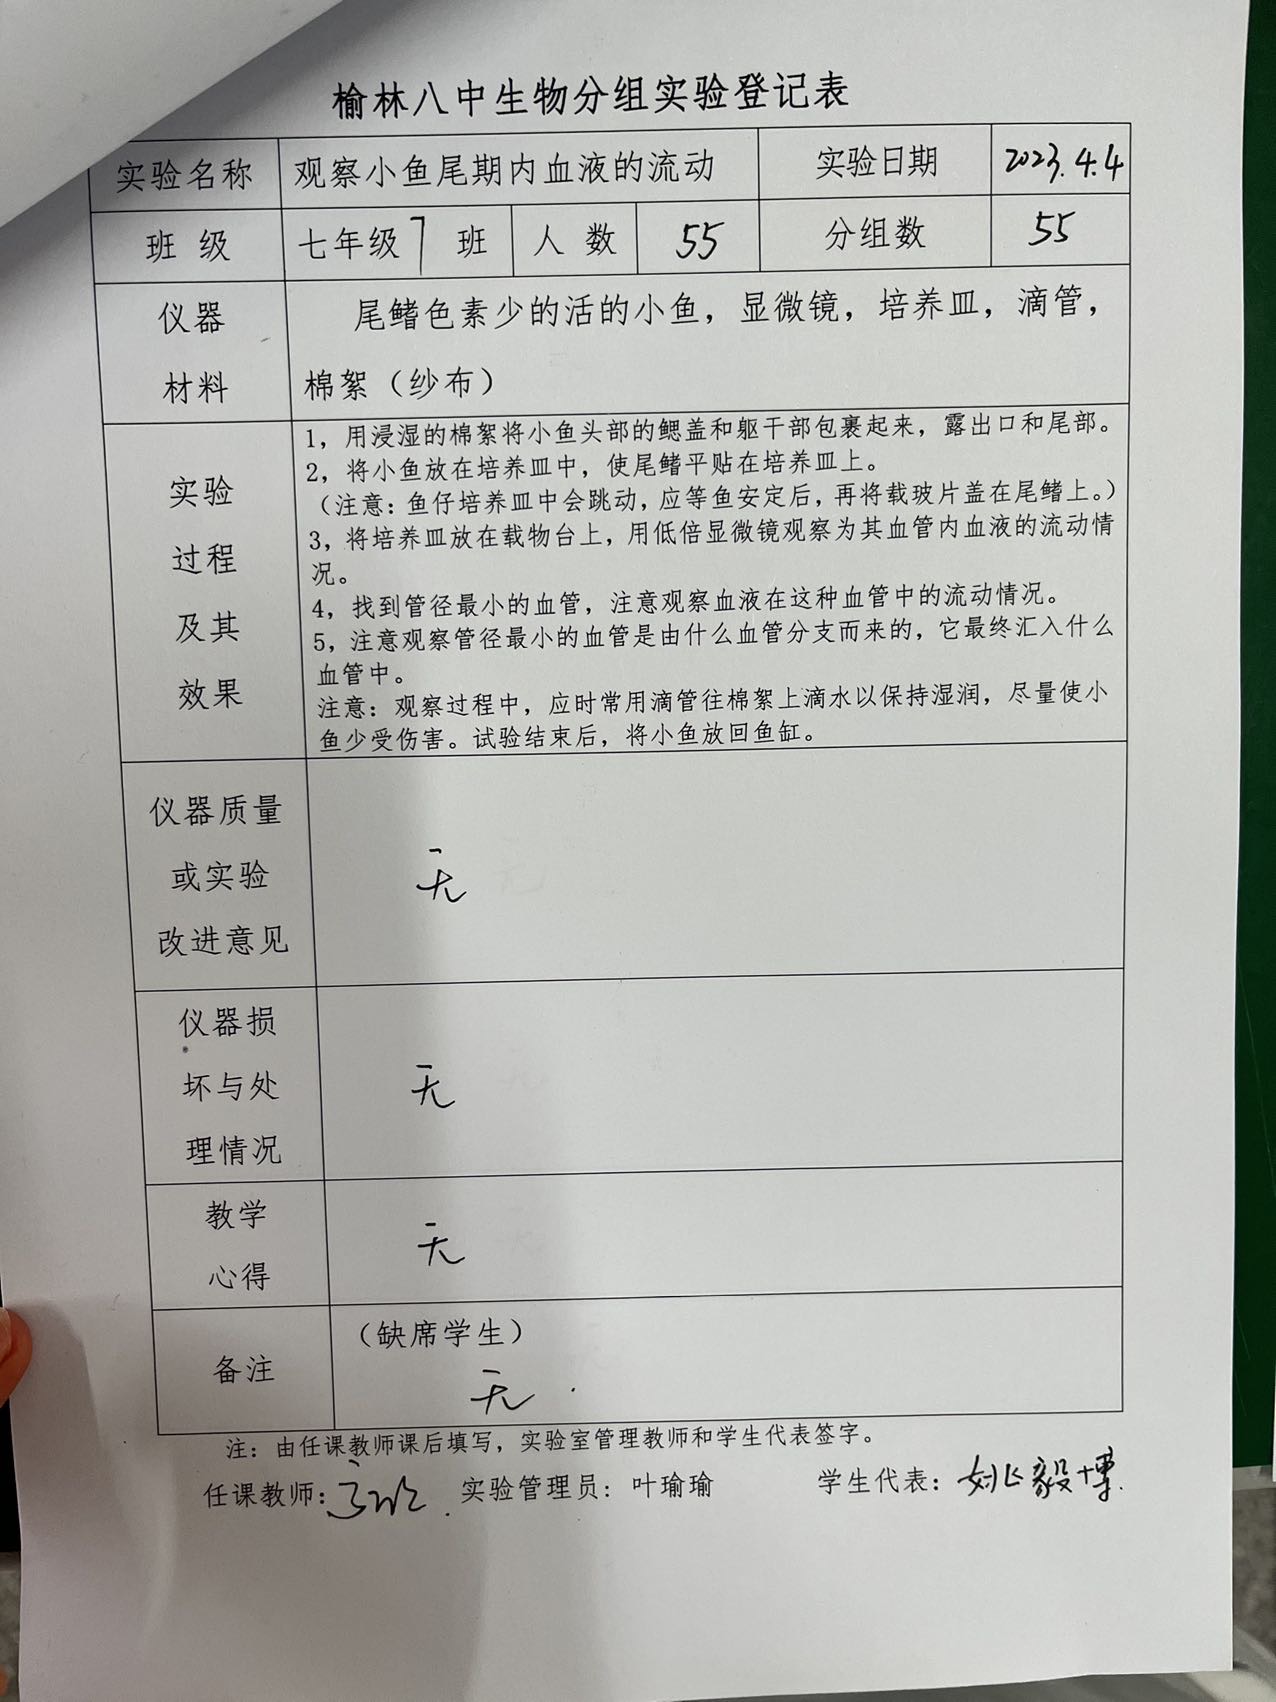 榆林八中生物分组实验登记表
实验名称 观察小鱼尾期内血液的流动 实验日期 2023.4.4
班 级 七年级7班 人 数 55 分组数 55
仪器
材料
尾鳍色素少的活的小鱼，显微镜，培养皿，滴管，
棉絮（纱布）
实验
过程
及其
效果
1，用浸湿的棉絮将小鱼头部的鳃盖和躯干部包裹起来，露出口和尾部。
2，将小鱼放在培养皿中，使尾鳍平贴在培养皿上。
（注意：鱼仔培养皿中会跳动，应等鱼安定后，再将载玻片盖在尾鳍上。）
3，将培养皿放在载物台上，用低倍显微镜观察为其血管内血液的流动情
况。
4，找到管径最小的血管，注意观察血液在这种血管中的流动情况。
5，注意观察管径最小的血管是由什么血管分支而来的，它最终汇入什么
血管中。
注意：观察过程中，应时常用滴管往棉絮上滴水以保持湿润，尽量使小
鱼少受伤害。试验结束后，将小鱼放回鱼缸。
仪器质量
或实验
改进意见
无
仪器损
坏与处
理情况
无
教学
心得
无
备注
（缺席学生）
无
注：由任课教师课后填写，实验室管理教师和学生代表签字。
任课教师： 实验管理员：叶瑜瑜 学生代表：姚毅博